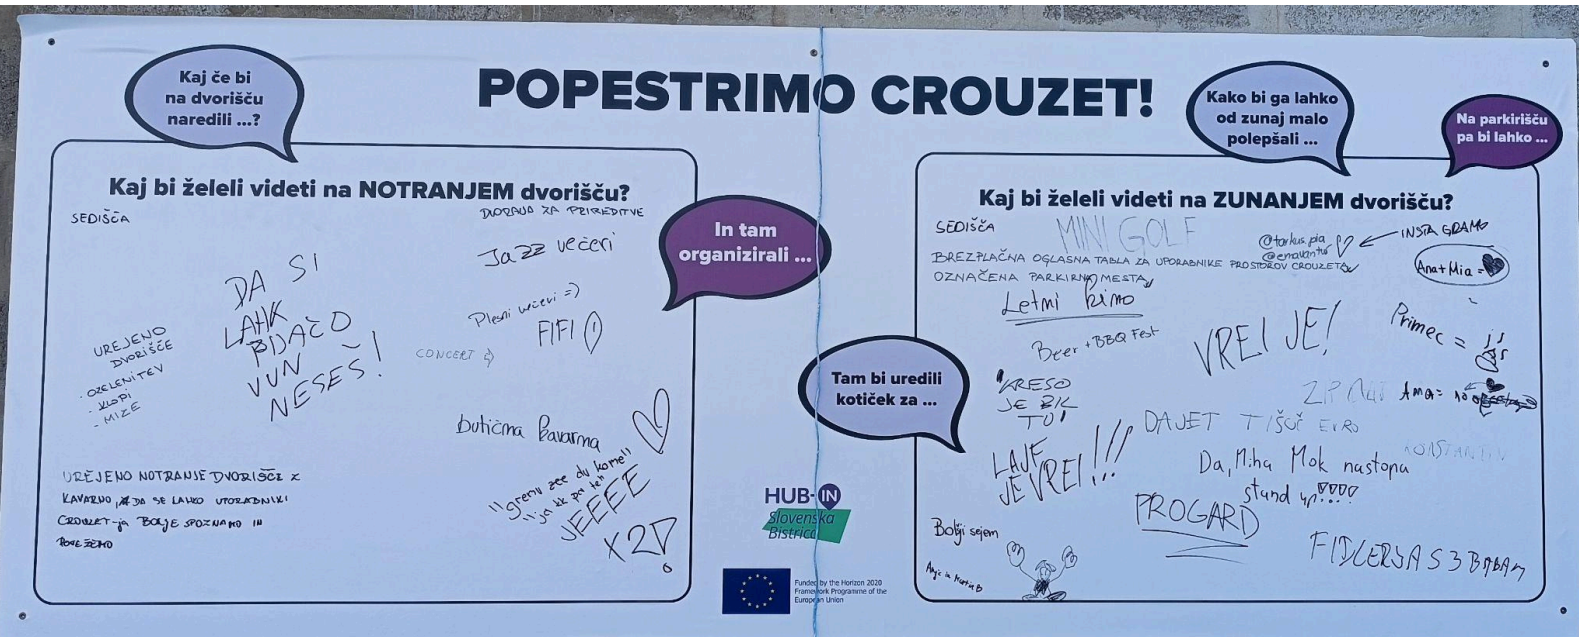 POPESTRIMO CROUZET!
Kaj če bi
na dvorišču
naredili ...?
Kaj bi želeli videti na NOTRANJEM dvorišču?
SEDIŠČA
DVORANA ZA PRIREDITVE
Jazz večeri
DA SI
LAHK
PIJAČO
VUN
NESEŠ!
Plesni večeri =)
FIFI
CONCERT
UREJENO
DVORIŠČE
- OZELENITEV
- KLOPI
- MIZE
butična kavarna
UREJENO NOTRANJE DVORIŠČE Z
KAVARNO, DA SE LAHKO UPORABNIKI
CROUZET-ja BOLJE SPOZNAMO IN
POVEŽEMO
"gremo zee du kome"
"ja kk pa teb"
JEEEE
X2D
In tam
organizirali ...
Tam bi uredili
kotiček za ...
HUB-IN
Slovenska
Bistrica
Funded by the Horizon 2020
Framework Programme of the
European Union
Kako bi ga lahko
od zunaj malo
polepšali ...
Na parkirišču
pa bi lahko ...
Kaj bi želeli videti na ZUNANJEM dvorišču?
SEDIŠČA
MINI GOLF
@tarkus.pia
INSTAGRAMO
BREZPLAČNA OGLASNA TABLA ZA UPORABNIKE PROSTOROV CROUZETA
OZNAČENA PARKIRNA MESTA
Ana + Mia =
Letni kino
Beer + BBQ Fest
VREI JE!
Primec =
KRESO
JE BIK
TU!
DAJET TIŠOČ EVRO
LAJF
JE VREI!!!
Da, Miha Mok nastopa
stand up!!!!
PROGARD
Bolji sejem
FIDLERJA S 3 BABAM